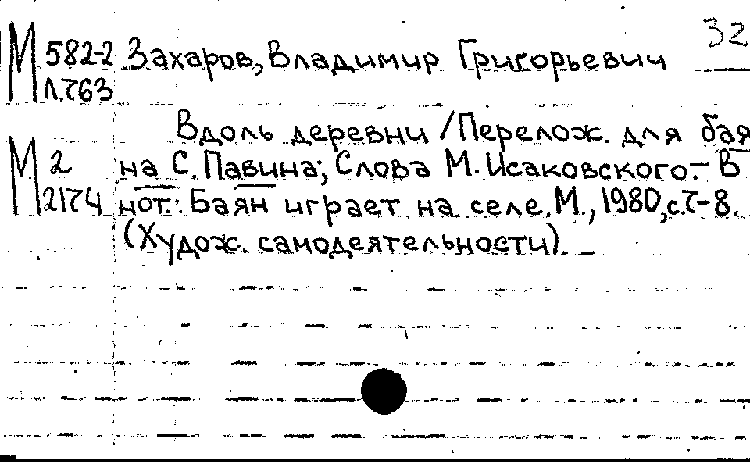 32
М 582-2 Захаров, Владимир Григорьевич
Л.763
Вдоль деревни / Перелож. для бая
М 2 на С. Павина; Слова М. Исаковского.- В
2174 нот.: Баян играет на селе. М., 1980, с.7-8.
(Худож. самодеятельности).